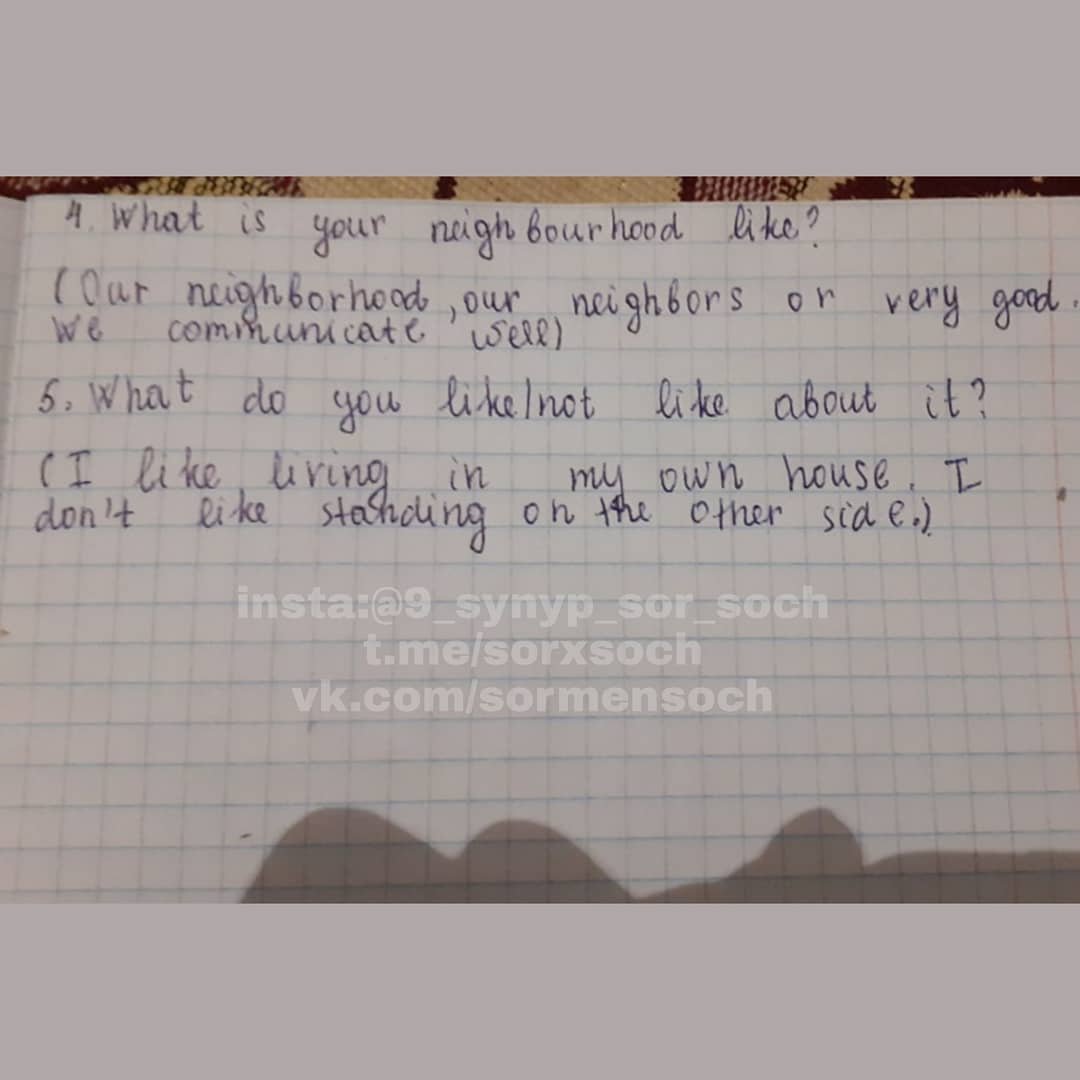 4. What is your neighbourhood like?
(Our neighborhood, our neighbors or very good.
we communicate well)
5. What do you like/not like about it?
(I like living in my own house. I
don't like standing on the other side.)
insta:@9_synyp_sor_soch
t.me/sorxsoch
vk.com/sormensoch